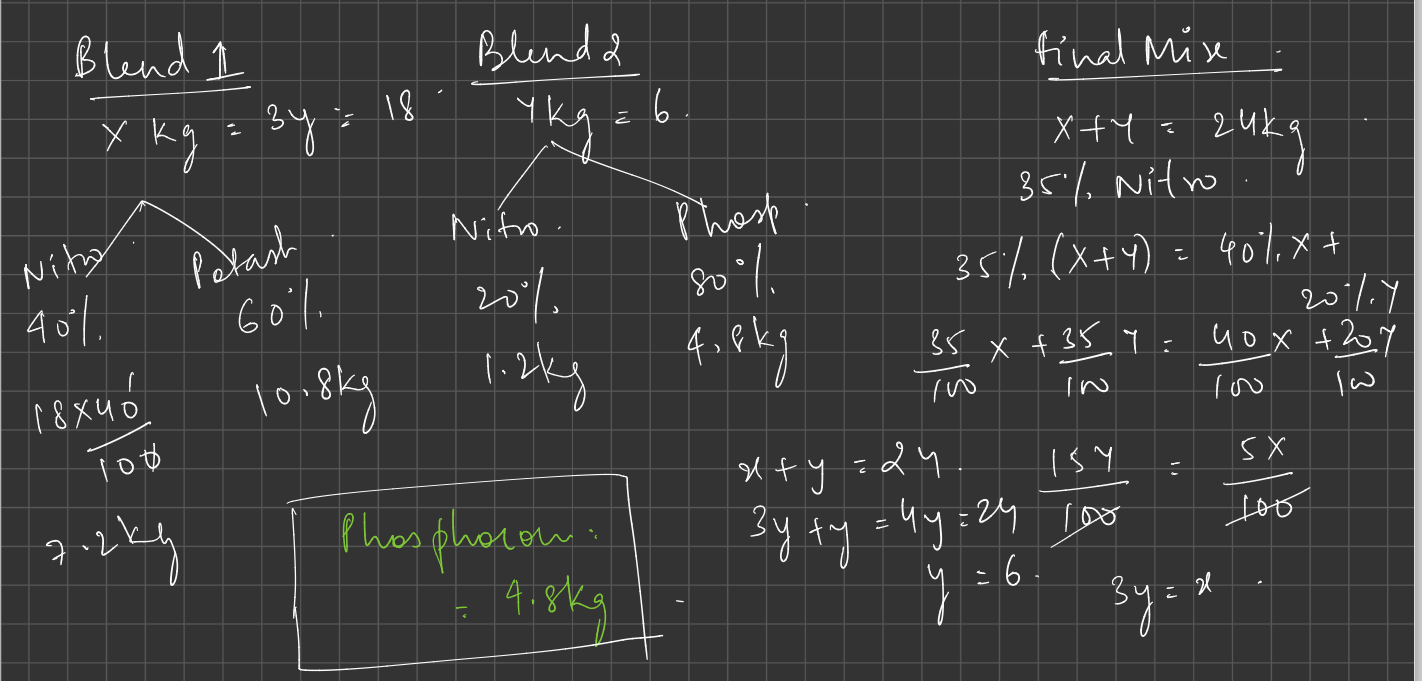 Blend 1
X kg = 3y = 18
Nitro
40%
18×40
100
7.2kg
Potash
60%
10.8kg
Blend 2
Y kg = 6.
Nitro.
20%
1.2kg
Phosp.
80%
4.8kg
Phosphorou:
= 4.8kg
Final Mixe
X+Y = 24kg
35% Nitro.
35% (X+Y) = 40% X +
20% Y
35/100 X + 35/100 Y = 40/100 X + 20/100 Y
15Y/100 = 5X/100
3y = x
x + y = 24.
3y + y = 4y = 24
y = 6.